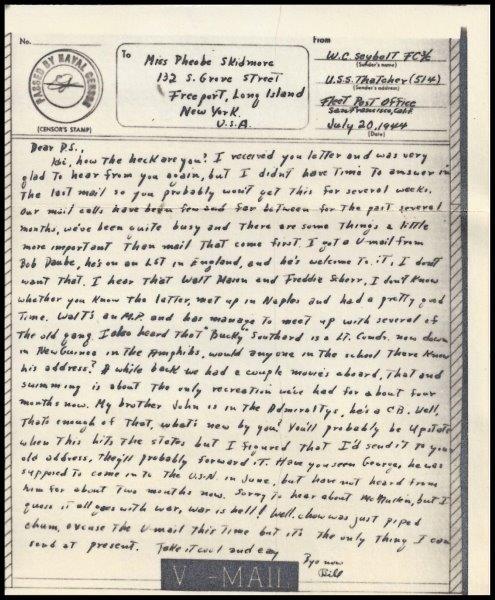 No.
PASSED BY NAVAL CENSOR
(CENSOR'S STAMP)
To
Miss Pheobe Skidmore
132 S. Grove Street
Freeport, Long Island
New York.
U.S.A.
From
W.C. Seybolt FC3/c
(Sender's name)
U.S.S. Thatcher (514)
(Sender's address)
Fleet Post Office
San Francisco, Calif.
July 20, 1944
(Date)
Dear P.S.,
Hi, how the heck are you? I received you letter and was very
glad to hear from you again, but I didn't have time to answer in
the last mail so you probably won't get this for several weeks.
Our mail calls have been few and far between for the past several
months, we've been quite busy and there are some things a little
more important than mail that come first. I got a V-mail from
Bob Daube, he's on an LST in England, and he's welcome to it, I don't
want that. I hear that Walt Mason and Freddie Scherr, I don't know
whether you know the latter, met up in Naples and had a pretty good
time. Walt's an M.P. and has manage to meet up with several of
the old gang. I also heard that "Bucky" Southard is a Lt. Comdr. now down
in New Guinea in the Amphibs, would anyone in the school there know
his address? A while back we had a couple movie's aboard, that and
swimming is about the only recreation we've had for about four
months now. My brother John is in the Admiraltys, he's a C.B. Well,
thats enough of that, what's new by you? You'll probably be upstate
when this hits the states but I figured that I'd send it to your
old address, they'll probably forward it. Have you seen George, he was
supposed to come in to the U.S.N. in June, but have not heard from
him for about two months now. Sorry to hear about but I
guess it all goes with war, war is hell! Well, chow was just piped
chum, excuse the V-mail this time but it's the only thing I can
send at present. Take it cool and easy
Bye now
Bill
V-MAIL